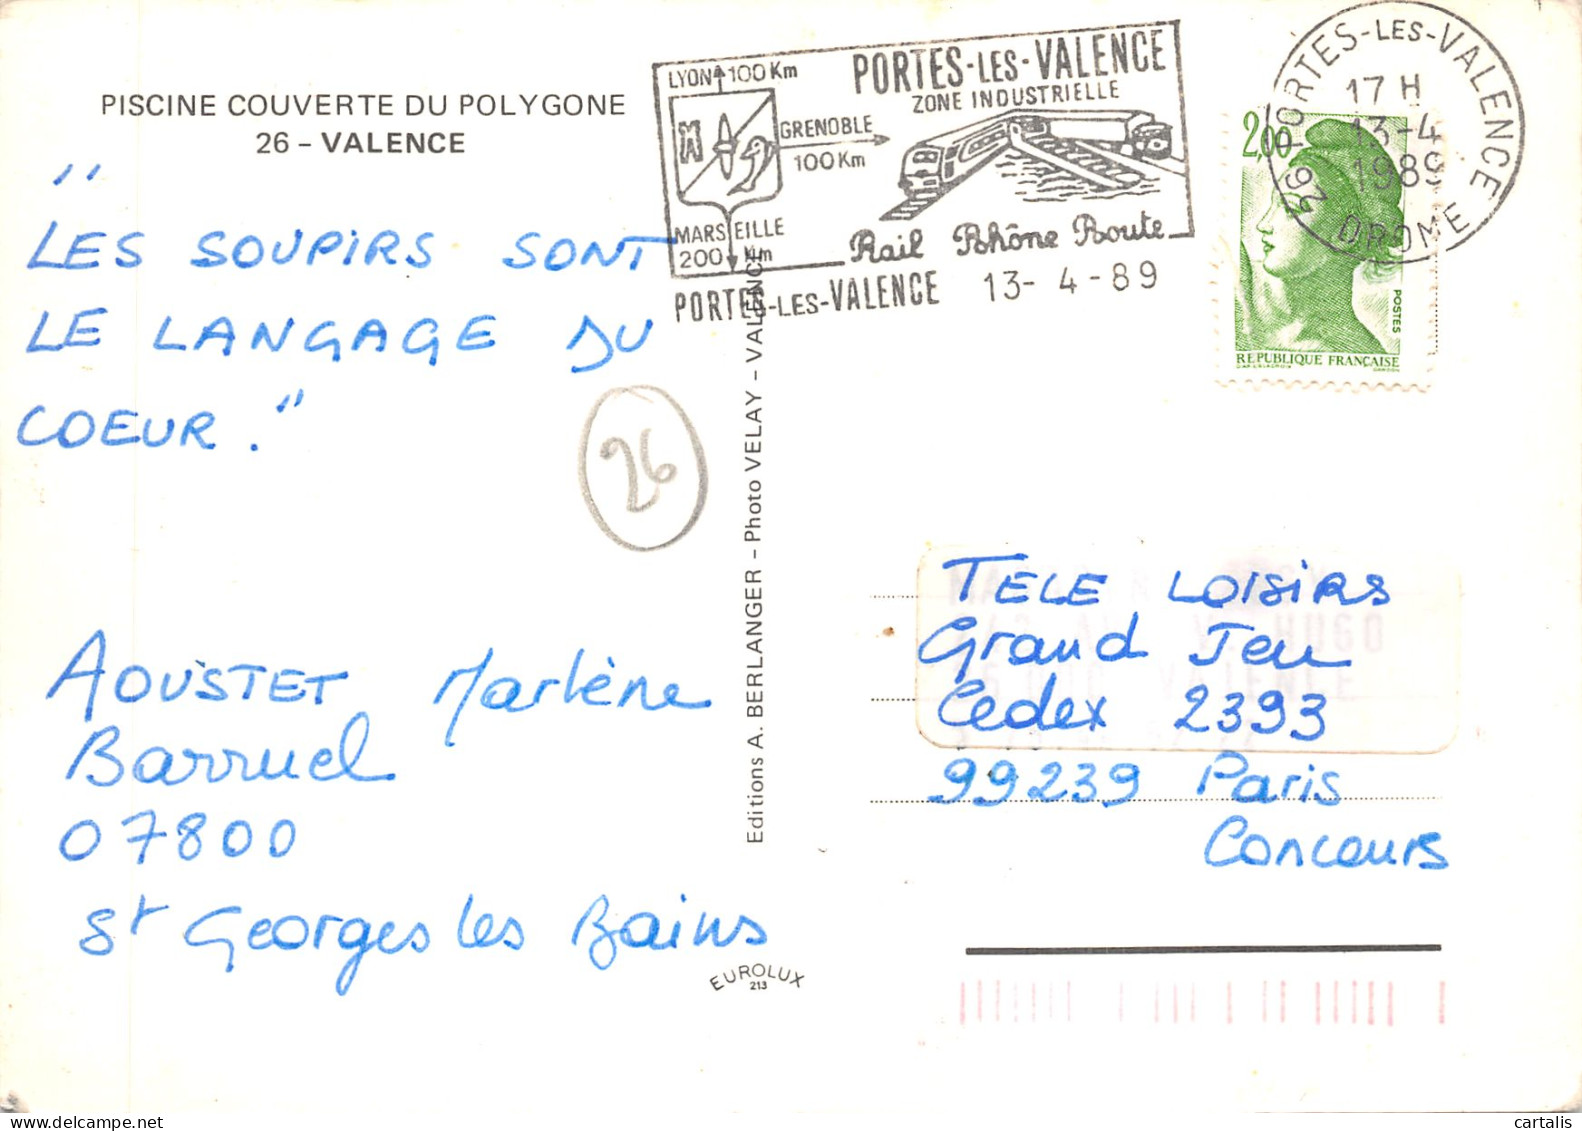 PISCINE COUVERTE DU POLYGONE
26 – VALENCE
"
LES SOUPIRS SONT
LE LANGAGE DU
COEUR."
26
AOUSTET Marlène
Barruel
07800
St Georges les Bains
Editions A. BERLANGER – Photo VELAY – VALENCE
EUROLUX
213
LYON 100 Km
GRENOBLE
100 Km
MARSEILLE
200 Km
PORTES-LES-VALENCE
ZONE INDUSTRIELLE
Rail Rhône Route
PORTES-LES-VALENCE 13-4-89
26 PORTES-LES-VALENCE
17 H
13-4
1989
DROME
2,00
POSTES
REPUBLIQUE FRANÇAISE
TELE LOISIRS
Grand Jeu
Cedex 2393
99239 Paris
Concours
HUGO
VALENCE
cartalis